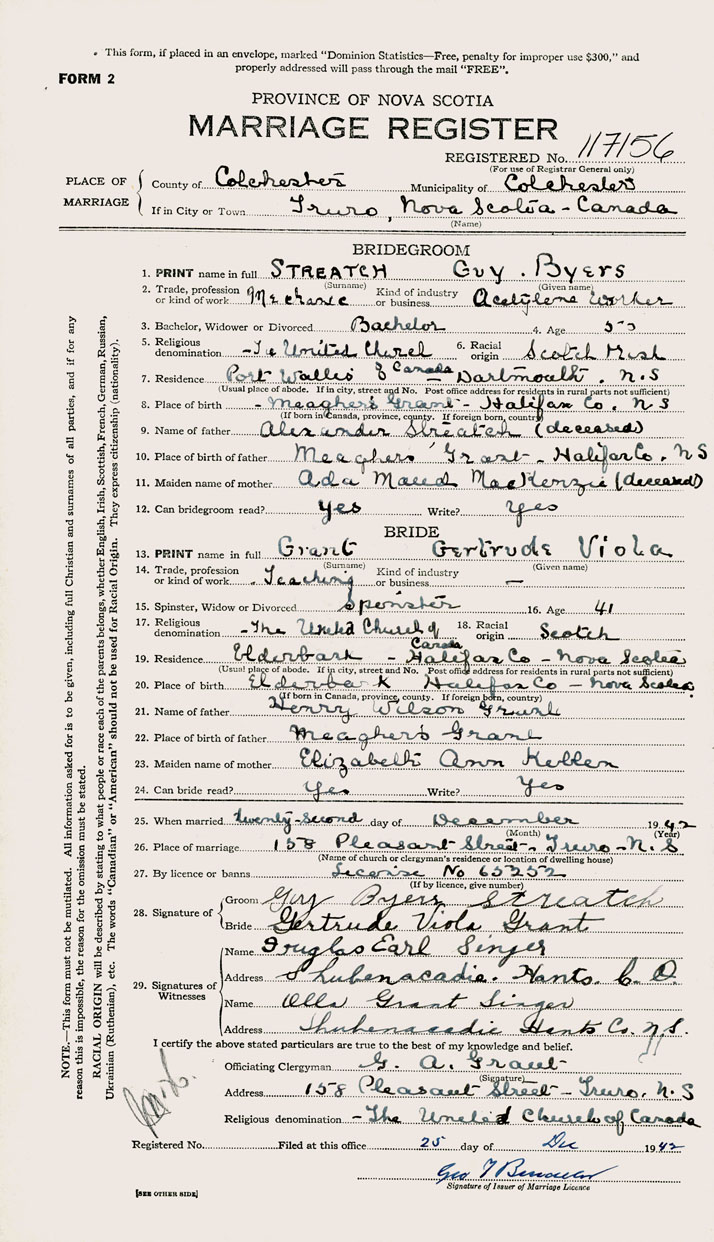 This form, if placed in an envelope, marked “Dominion Statistics—Free, penalty for improper use $300,” and
properly addressed will pass through the mail “FREE”.
FORM 2
PROVINCE OF NOVA SCOTIA
MARRIAGE REGISTER
REGISTERED No. 117156
(For use of Registrar General only)
PLACE OF MARRIAGE
County of Colchester Municipality of Colchester
If in City or Town Truro, Nova Scotia - Canada
(Name)
BRIDEGROOM
1. PRINT name in full STREATCH Guy. Byers
(Surname) (Given name)
2. Trade, profession or kind of work Mechanic Kind of industry or business Acetylene Worker
3. Bachelor, Widower or Divorced Bachelor 4. Age
5. Religious denomination - The United Church of Canada 6. Racial origin Scotch Irish
7. Residence Port Wallis Dartmouth. N.S
(Usual place of abode. If in city, street and No. Post office address for residents in rural parts not sufficient)
8. Place of birth - Meagher's Grant - Halifax Co. N S
(If born in Canada, province, county. If foreign born, country)
9. Name of father Alexander Streatch (deceased)
10. Place of birth of father Meaghers' Grant - Halifax Co. N S
11. Maiden name of mother Ada Maud MacKenzie (deceased)
12. Can bridegroom read? yes Write? Yes
BRIDE
13. PRINT name in full Grant Gertrude Viola
(Surname) (Given name)
14. Trade, profession or kind of work Teaching Kind of industry or business —
15. Spinster, Widow or Divorced Spinster 16. Age 41
17. Religious denomination - The United Church of Canada 18. Racial origin Scotch
19. Residence Elderbank - Halifax Co - Nova Scotia
(Usual place of abode. If in city, street and No. Post office address for residents in rural parts not sufficient)
20. Place of birth Elderbank Halifax Co - Nova Scotia
(If born in Canada, province, county. If foreign born, country)
21. Name of father Henry Wilson Grant
22. Place of birth of father Meaghers Grant
23. Maiden name of mother Elizabeth Ann
24. Can bride read? Yes Write? Yes
25. When married twenty-second day of December 1942
(Month) (Year)
26. Place of marriage 158 Pleasant Street - Truro - N. S
(Name of church or clergyman's residence or location of dwelling house)
27. By licence or banns License No 65252
(If by licence, give number)
28. Signature of
Groom Guy Byers Streatch
Bride Gertrude Viola Grant
29. Signatures of Witnesses
Name Douglas Earl Singer
Address Shubenacadie. Hants. C. O.
Name Olla Grant Singer
Address Shubenacadie Hants Co. N.S.
I certify the above stated particulars are true to the best of my knowledge and belief.
Officiating Clergyman G. A. Grant
(Signature)
Address 158 Pleasant Street - Truro. N. S
Religious denomination - The United Church of Canada
Registered No. Filed at this office 25 day of Dec 1942
Geo
Signature of Issuer of Marriage Licence
[SEE OTHER SIDE]
NOTE.—This form must not be mutilated. All information asked for is to be given, including full Christian and surnames of all parties, and if for any
reason this is impossible, the reason for the omission must be stated.
RACIAL ORIGIN will be described by stating to what people or race each of the parents belongs, whether English, Irish, Scottish, French, German, Russian,
Ukrainian (Ruthenian), etc. The words “Canadian” or “American” should not be used for Racial Origin. They express citizenship (nationality).